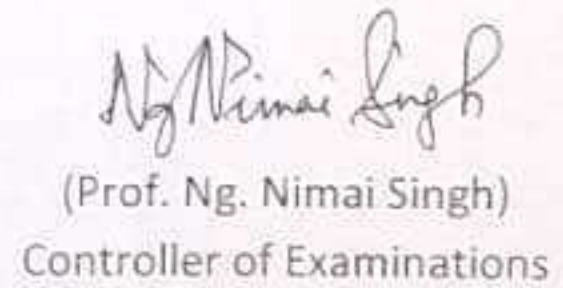 Ng Nimai Singh
(Prof. Ng. Nimai Singh)
Controller of Examinations